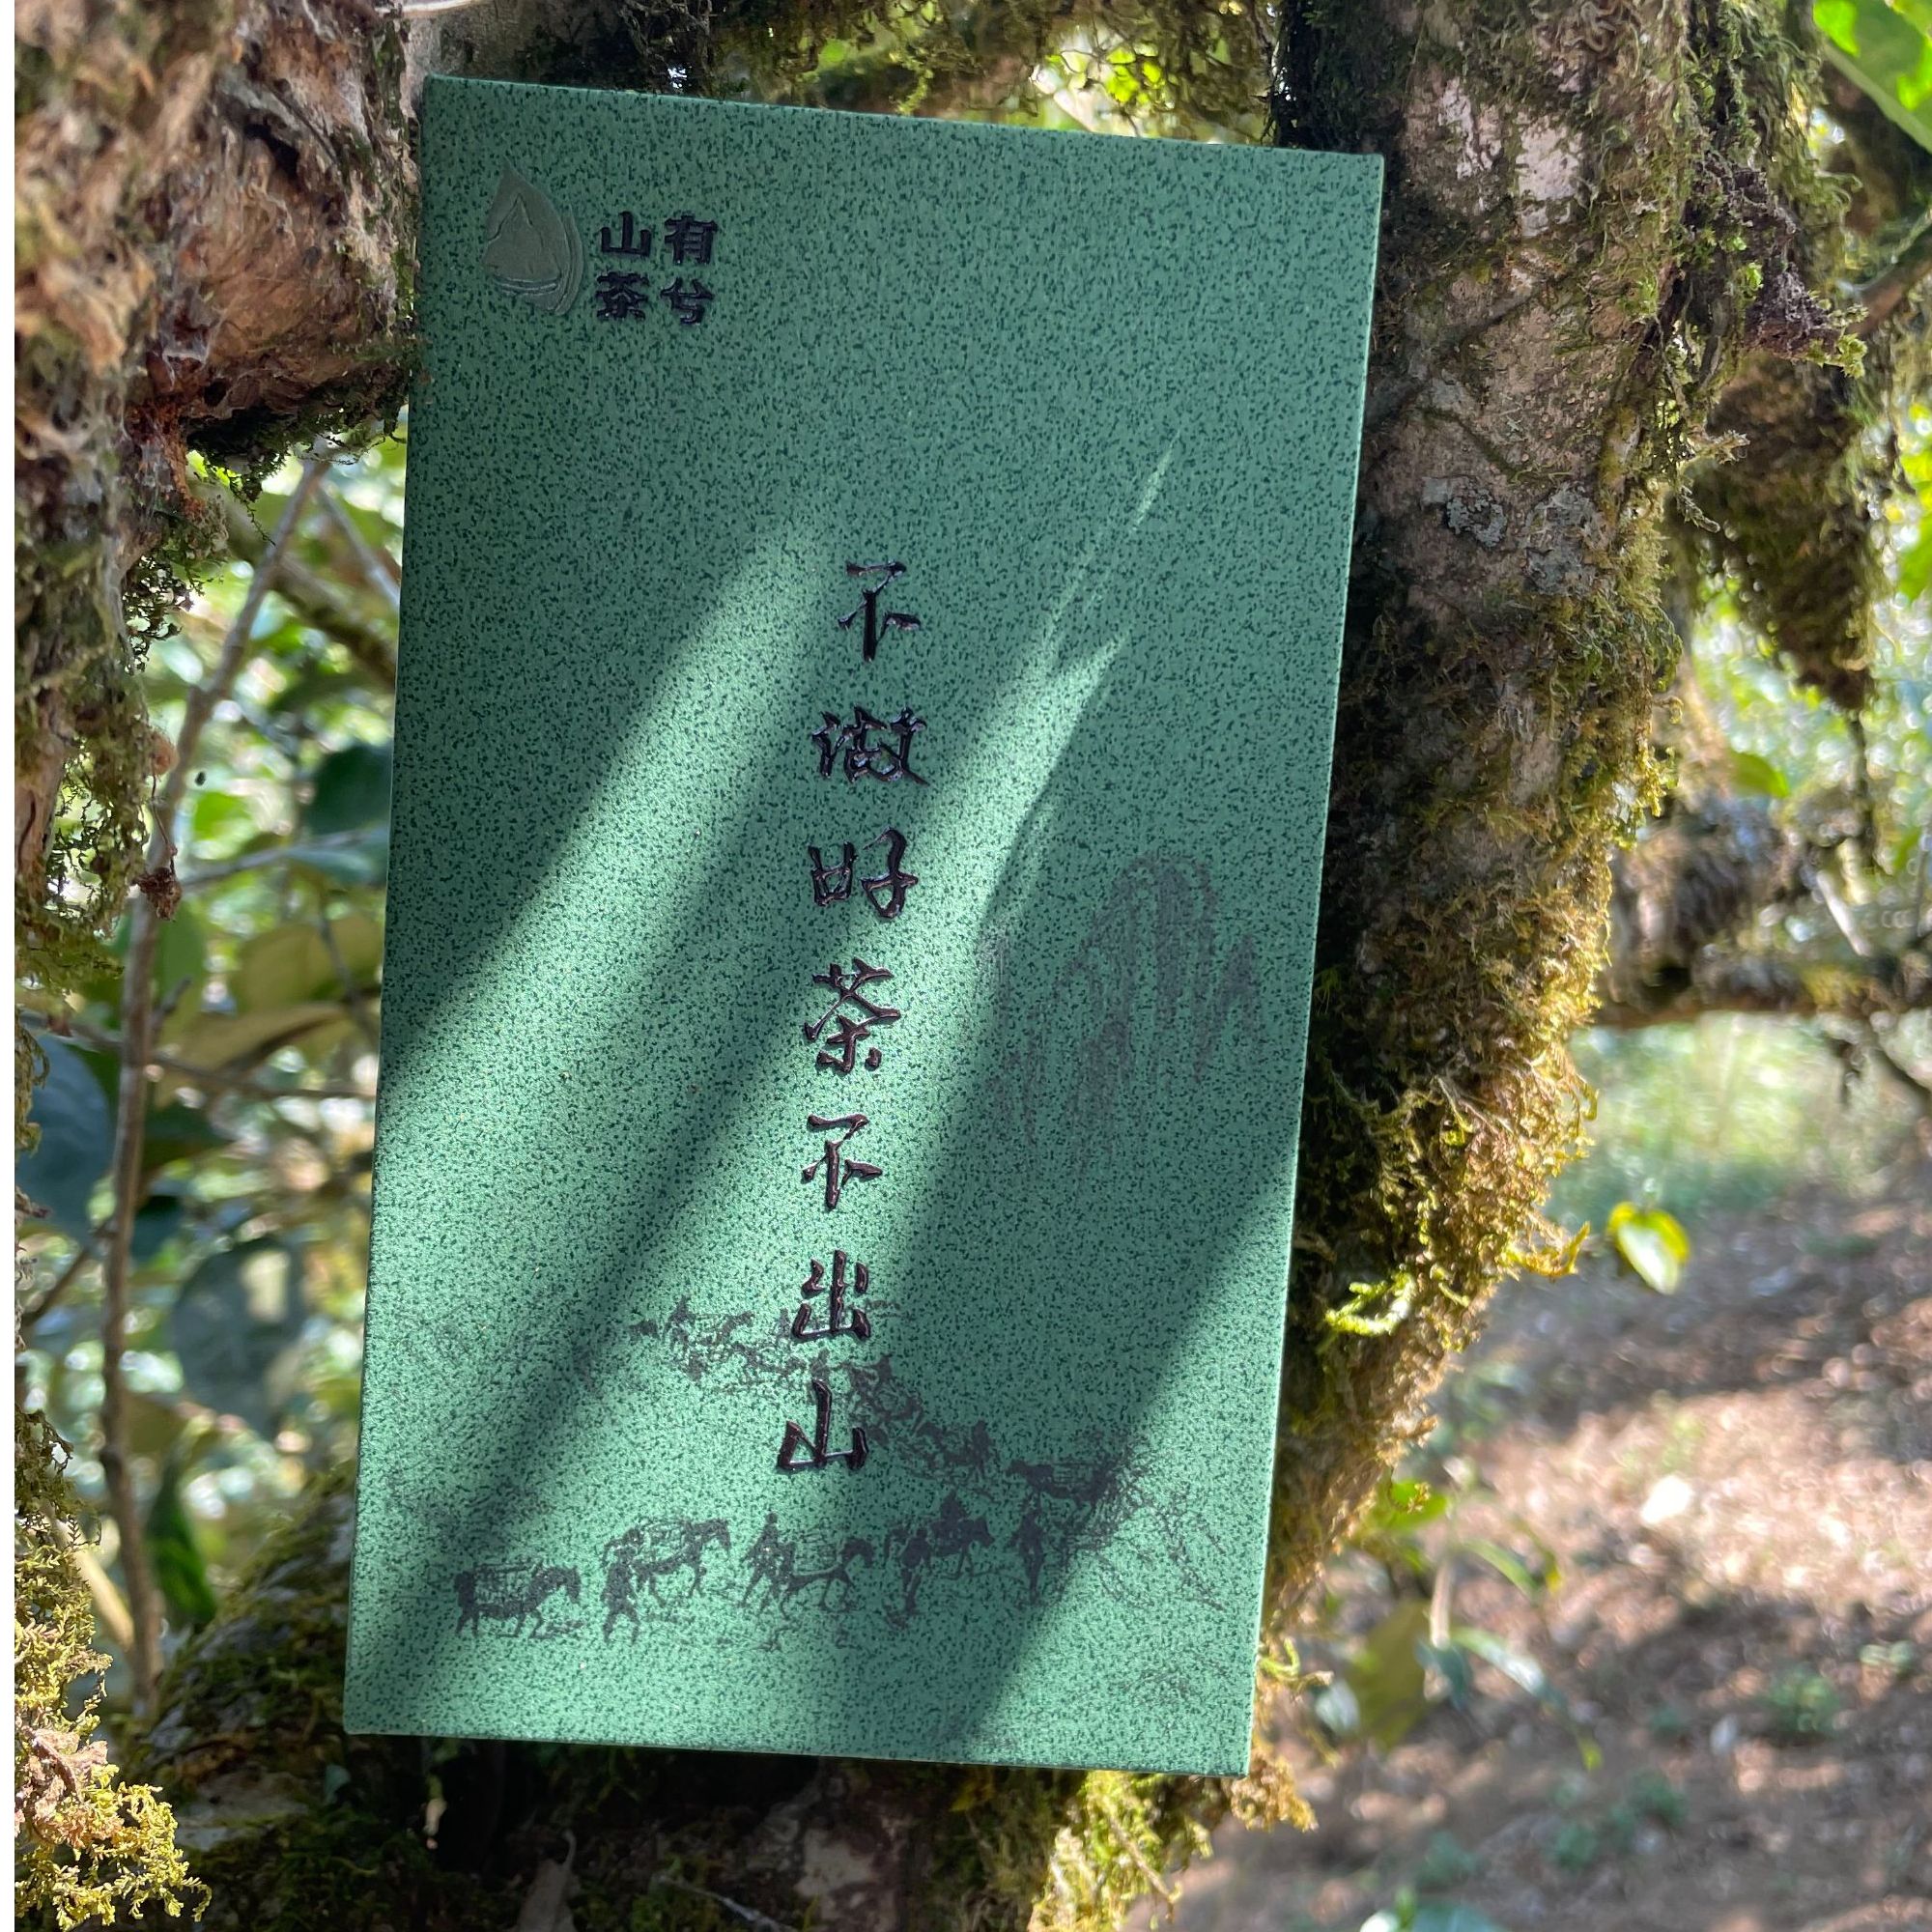 山有
茶兮
不做好茶不出山